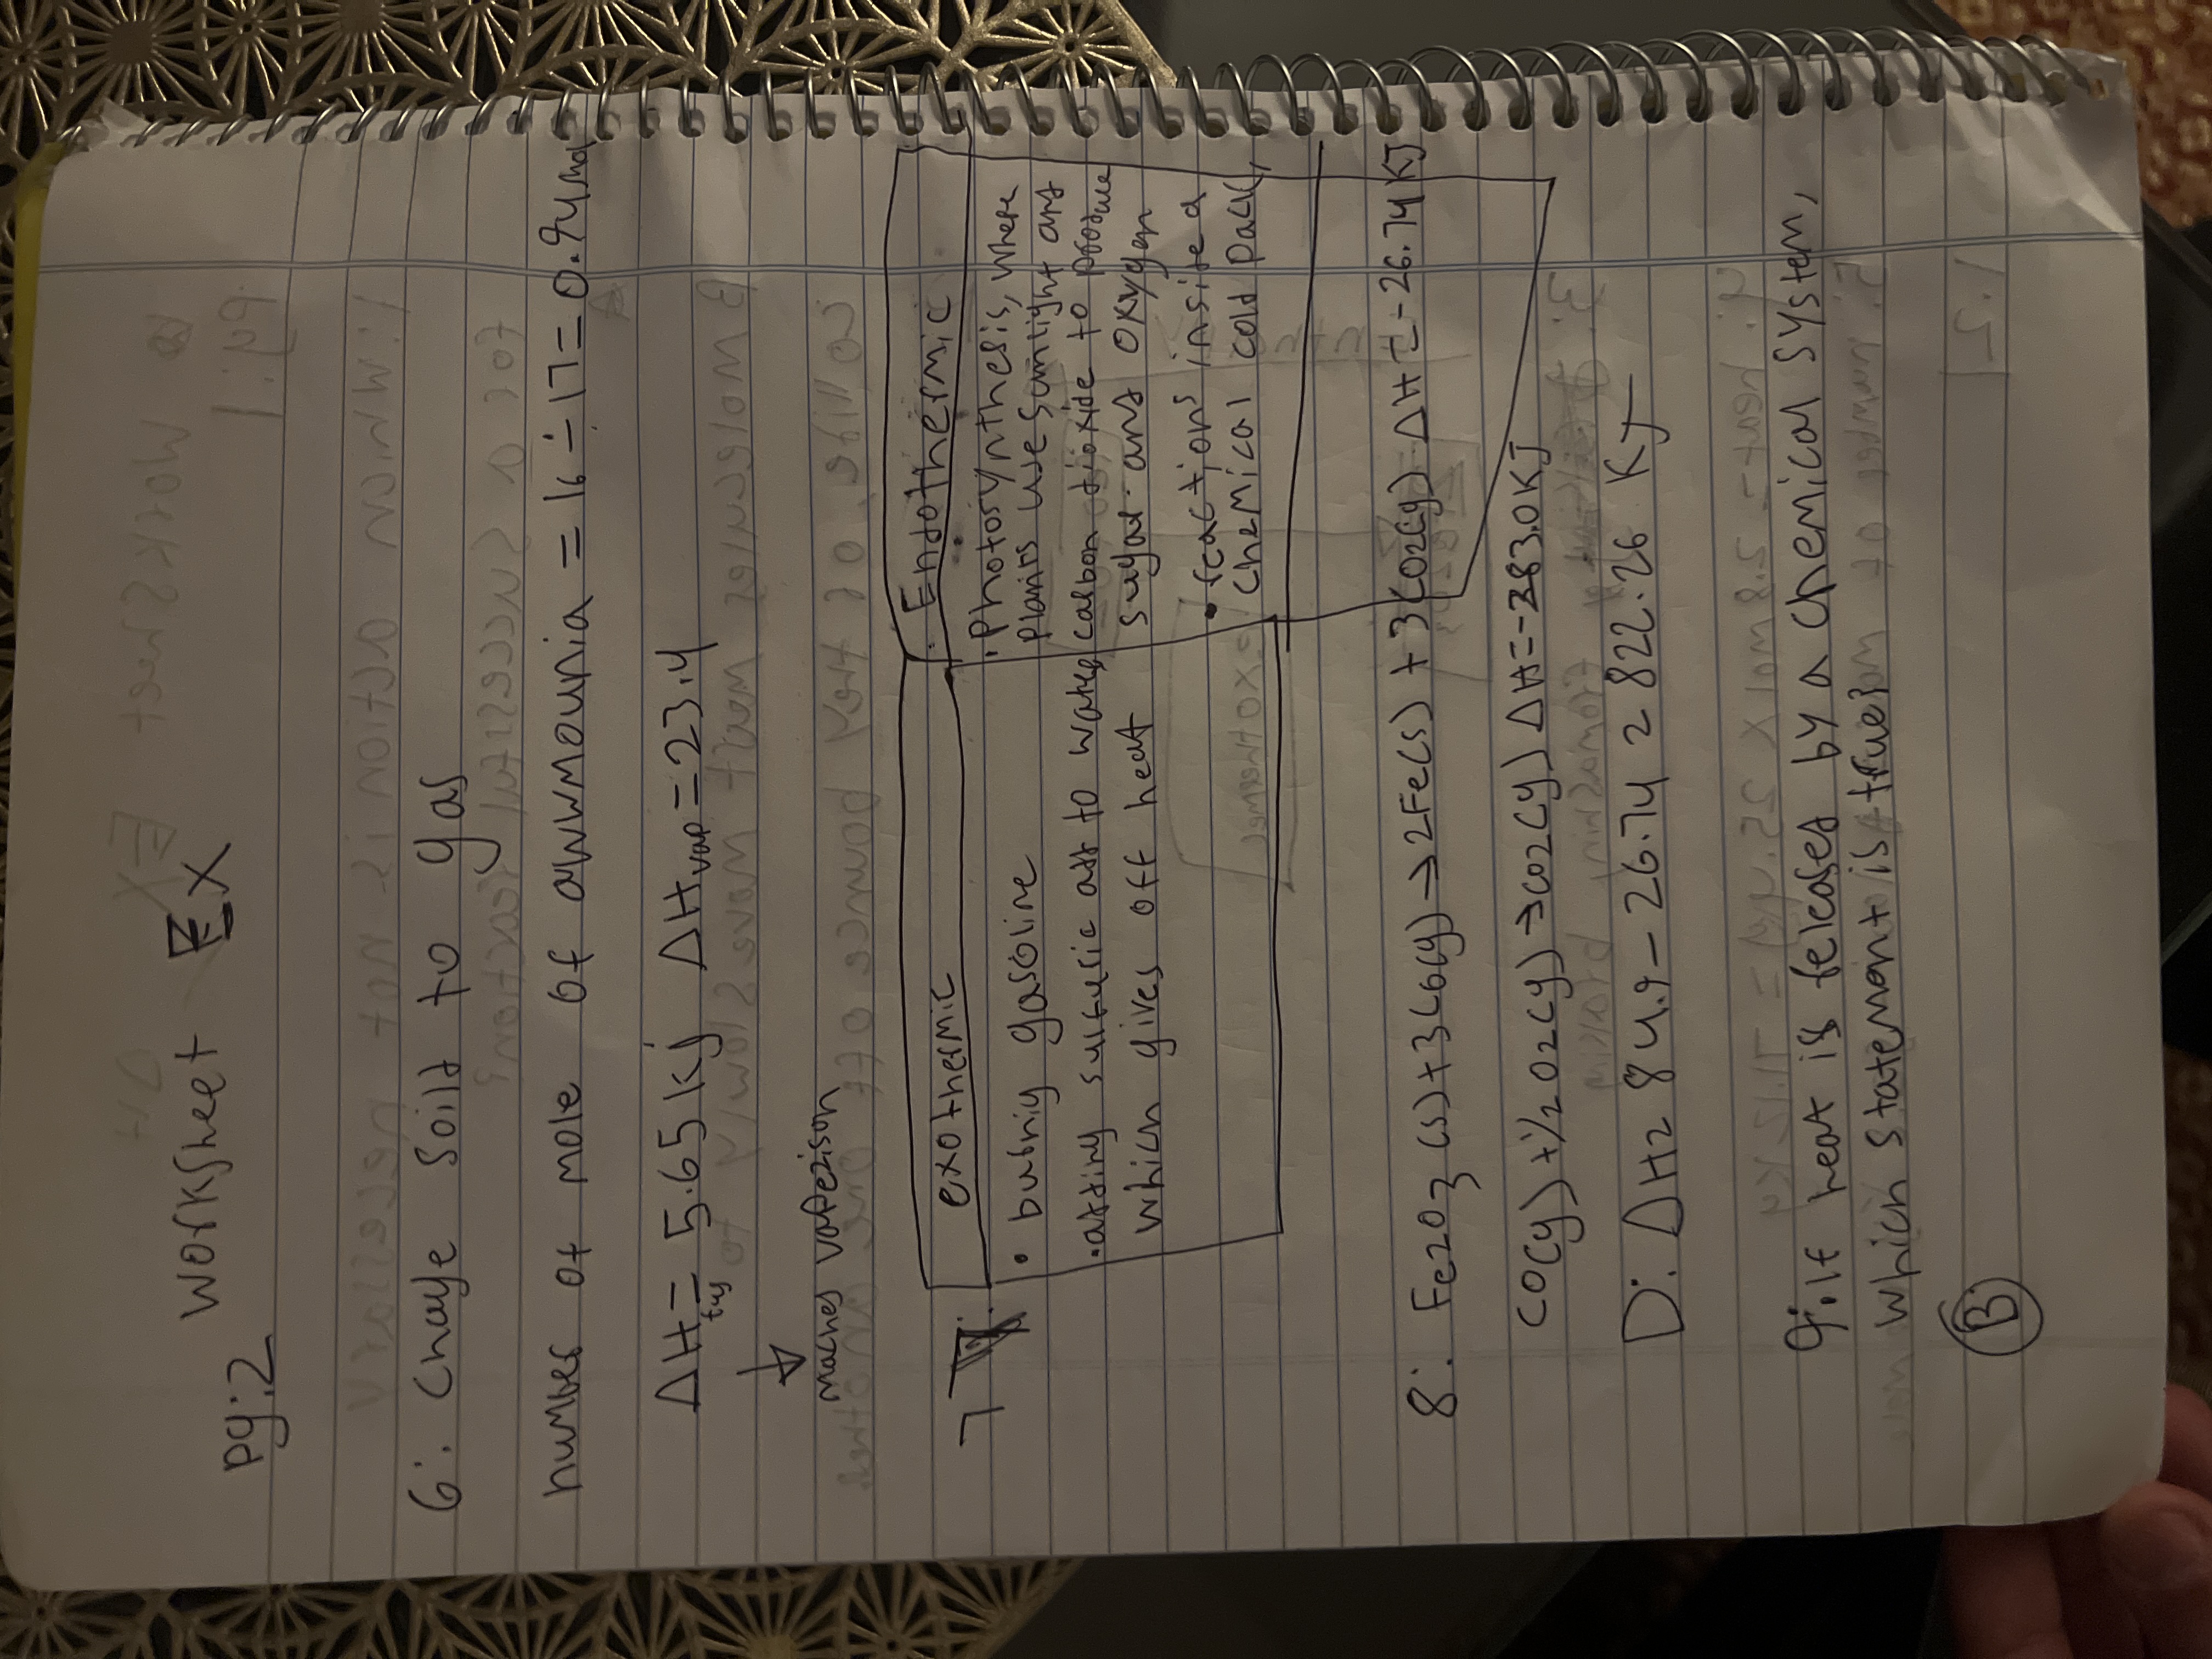 worksheet EX
pg:2
6: Chaye Soild to gas
number of mole of awwmounia = 16 ÷ 17 = 0.94mol
ΔHfus = 5.65 Kj ΔHvap = 23.4
↓
maches vaperison
7
exothermic
• burnig gasoline
• adding sulfuric add to water,
which gives off heat
Endothermic
• Photosynthesis, where
Plants use sunlight and
carbon dioxide to produce
sugar and oxygen
• reactions inside a
chemical cold pack,
8: Fe2O3(s)+3CO(g)→2Fe(s) + 3CO2(g) ΔH = -26.74KJ
CO(g) + 1/2 O2(g) → CO2(g) ΔH = -283.0KJ
D: ΔH2 84.9 - 26.74 2 822.26 KJ
9: if heat is released by a chemical system,
which statement is true?
B: